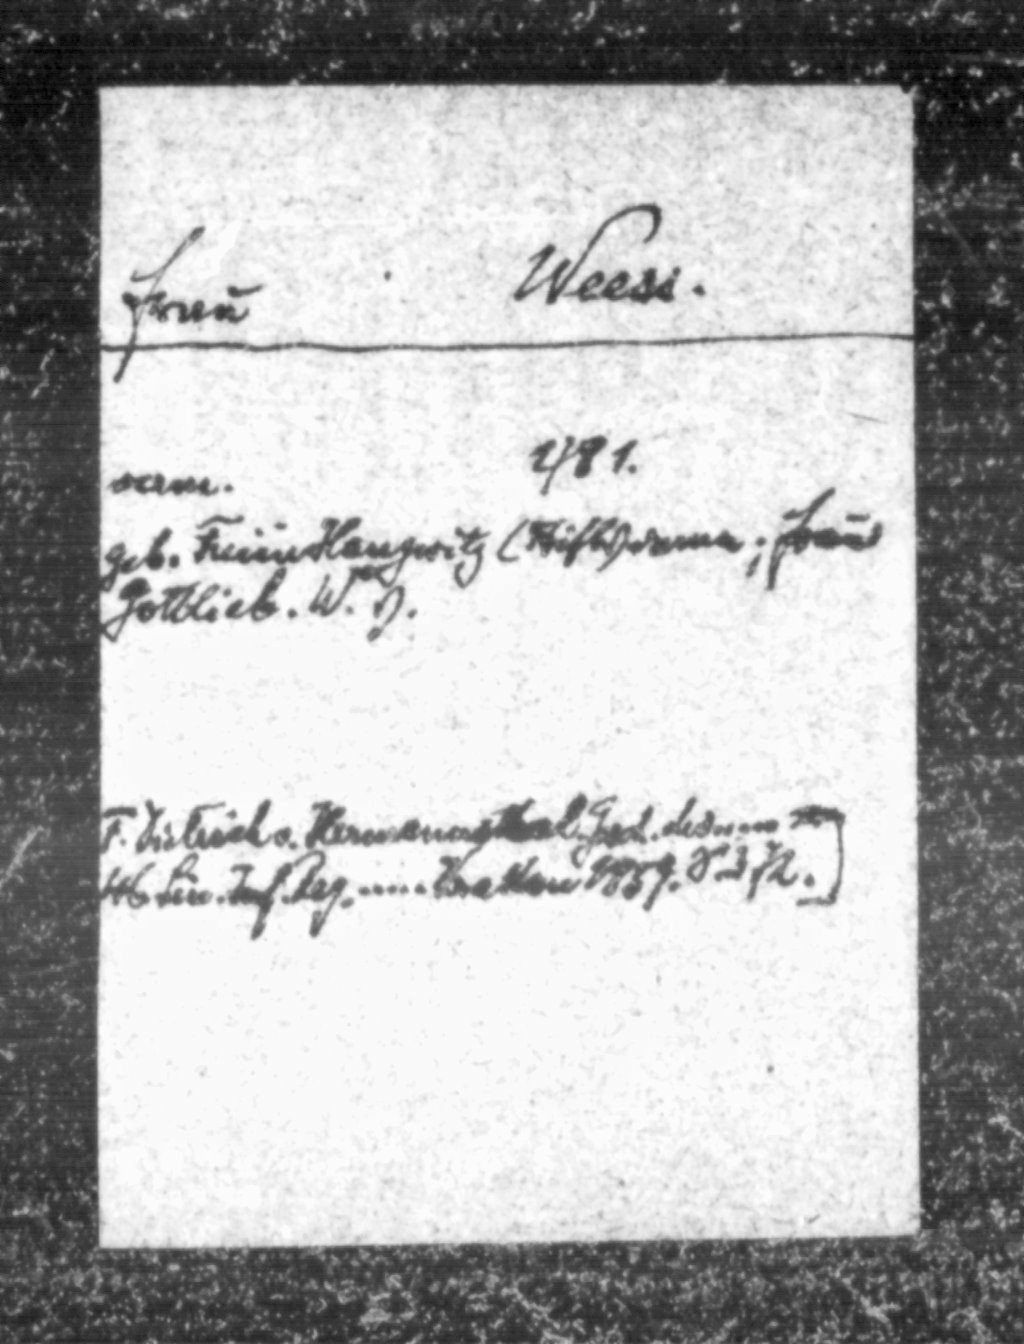 Frau Weess.
verm. 1781.
geb. Freiin Haugwitz (Stiftsdame; Frau
Gottlieb. W.
F. Dietrich v. Hermannsthal. Gesch. des ......
46. Lin. Inf. Reg. ..... Krakau 1859. S